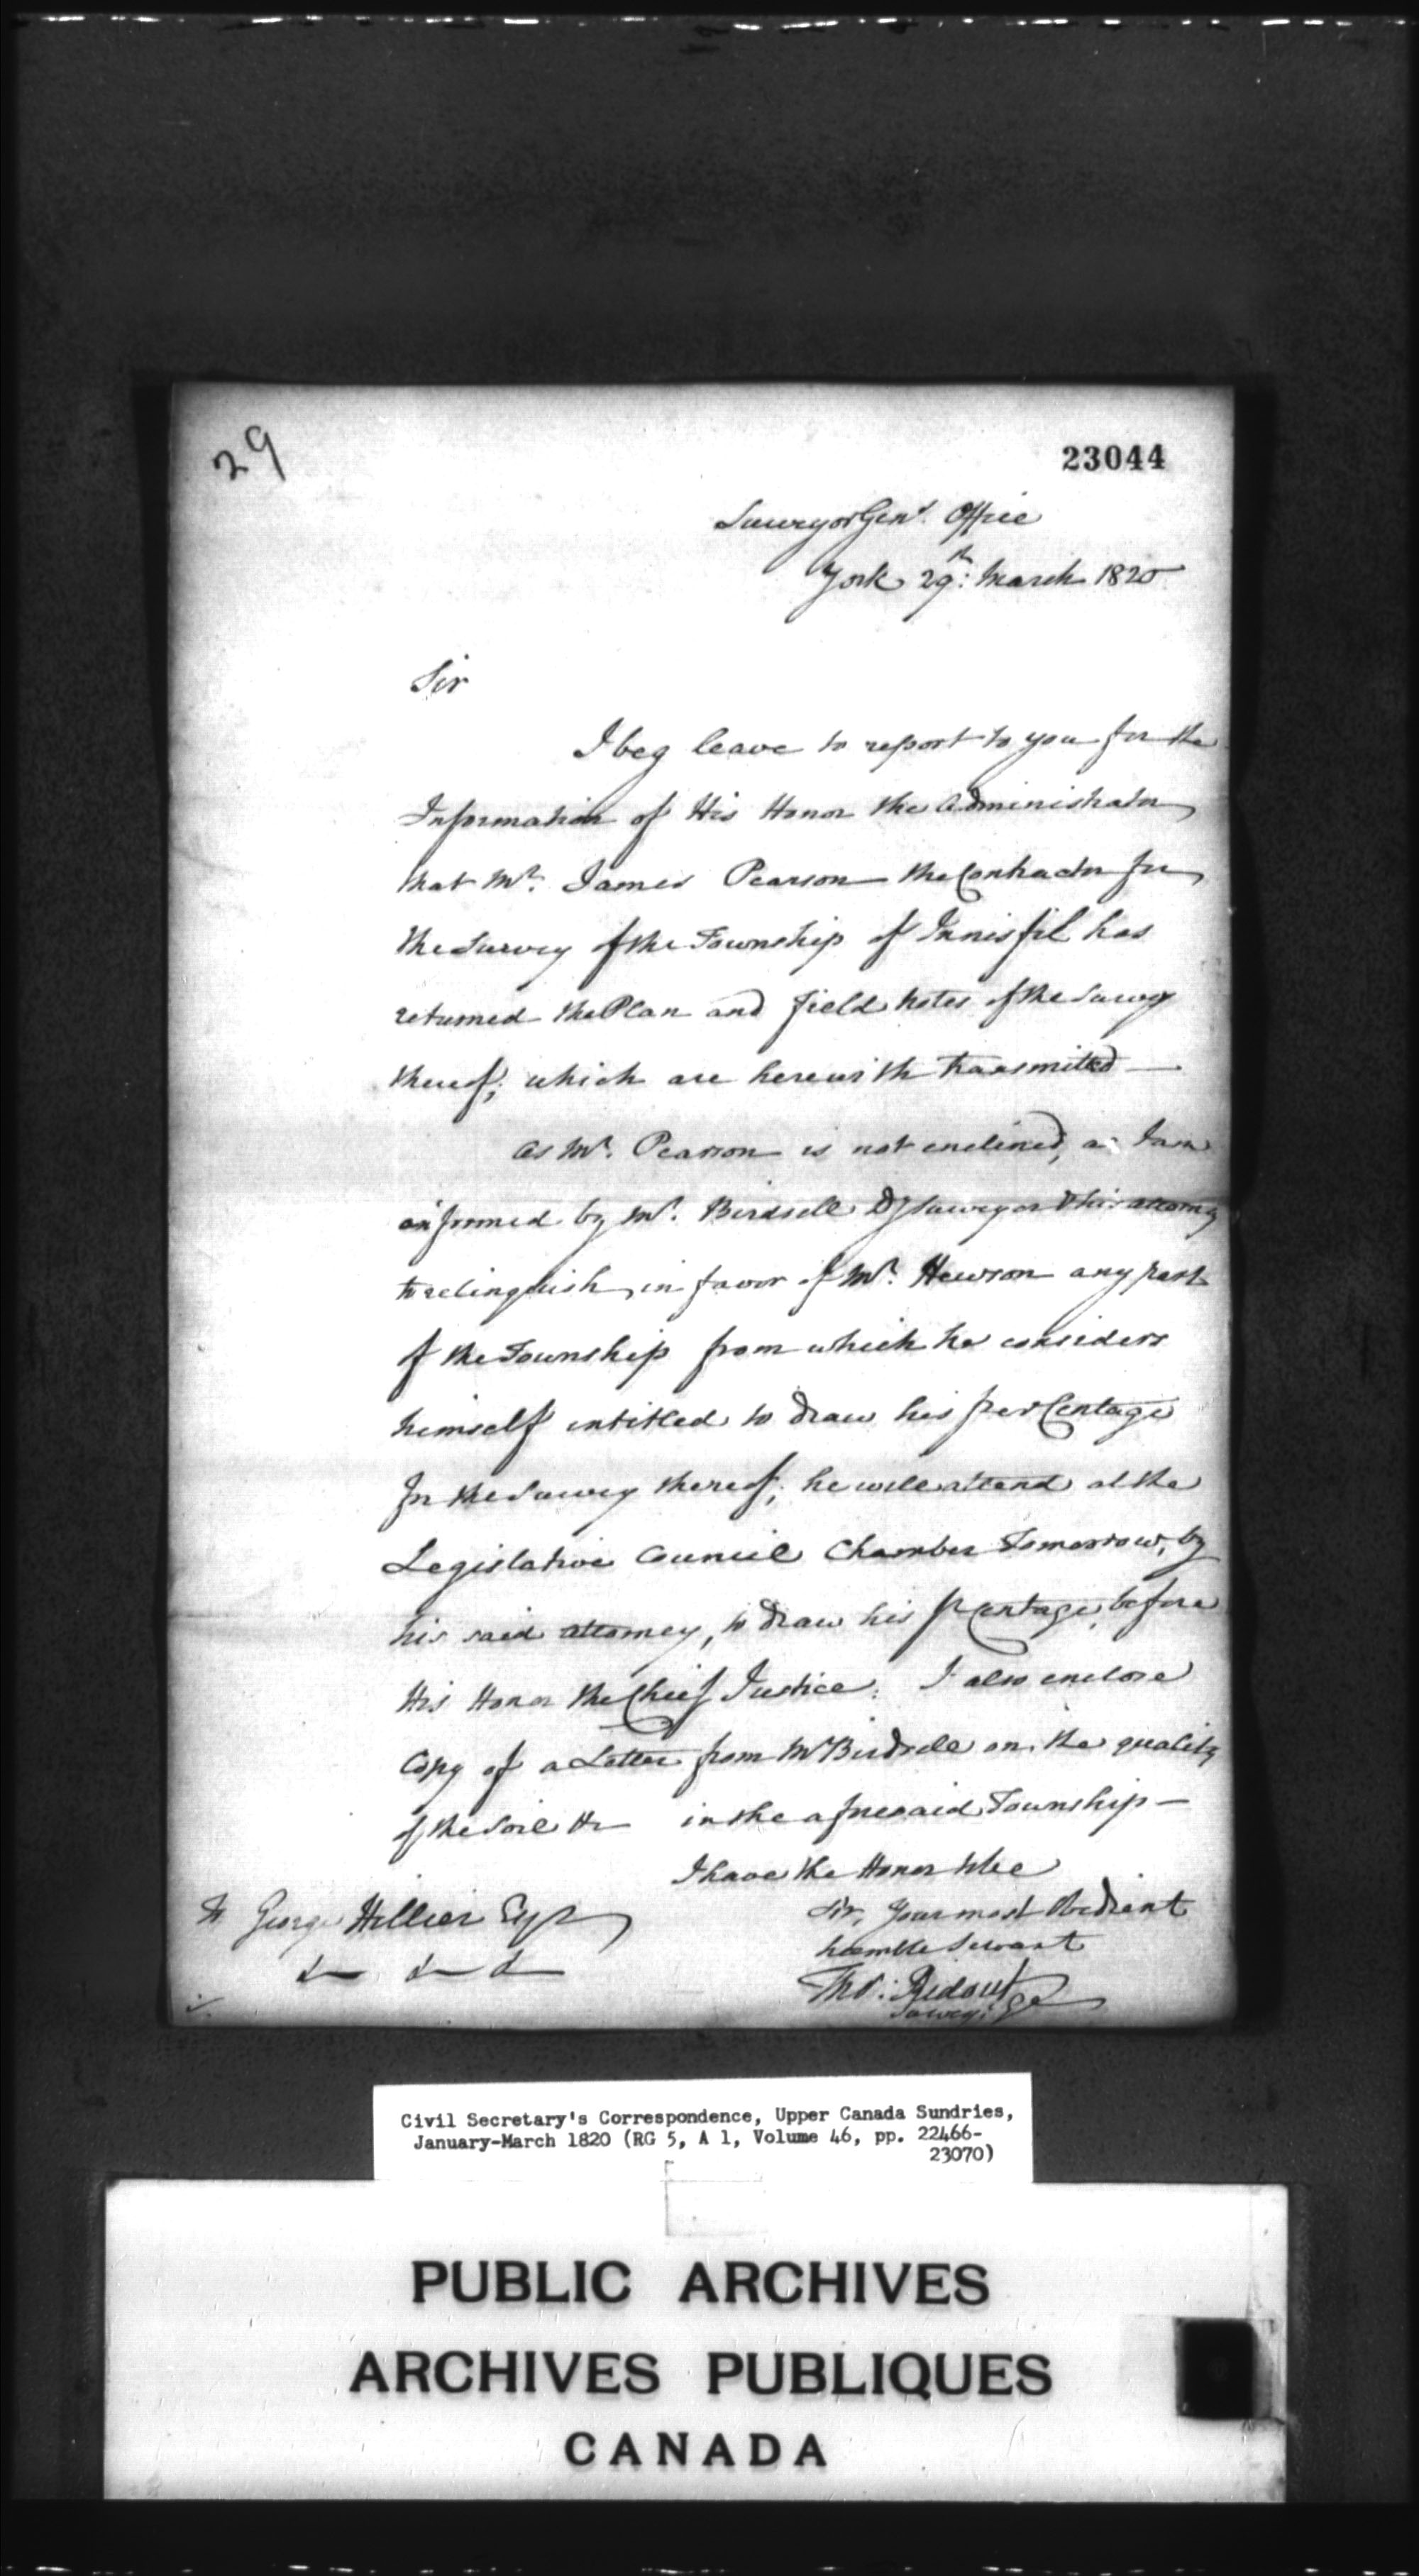 29
23044
Surveyor Genl. Office
York 29th: March 1820
Sir
I beg leave to report to you for the
Information of His Honor the Administrator
that Mr. James Pearson the Contractor for
the Survey of the Township of Innisfil has
returned the Plan and field notes of the Survey
thereof; which are herewith transmitted —
As Mr. Pearson is not enclined, as I am
informed by Mr. Birdsell Dy Surveyor & his attorney
to relinquish, in favor of Mr. Hewson any part
of the Township from which he considers
himself intitled to draw his per Centage
for the Survey thereof; he will attend at the
Legislative Council Chamber Tomorrow, by
his said attorney, to draw his pr Centage, before
His Honor the Chief Justice. I also enclose
Copy of a Letter from Mr Birdsell on the quality
of the Soil &c in the aforesaid Township —
I have the Honor to be
Sir, Your most Obedient
humble Servant
Thos: Ridout
Survey: Gel
To George Hillier Esqr
&c &c &c
Civil Secretary's Correspondence, Upper Canada Sundries,
January-March 1820 (RG 5, A 1, Volume 46, pp. 22466-
23070)
PUBLIC ARCHIVES
ARCHIVES PUBLIQUES
CANADA